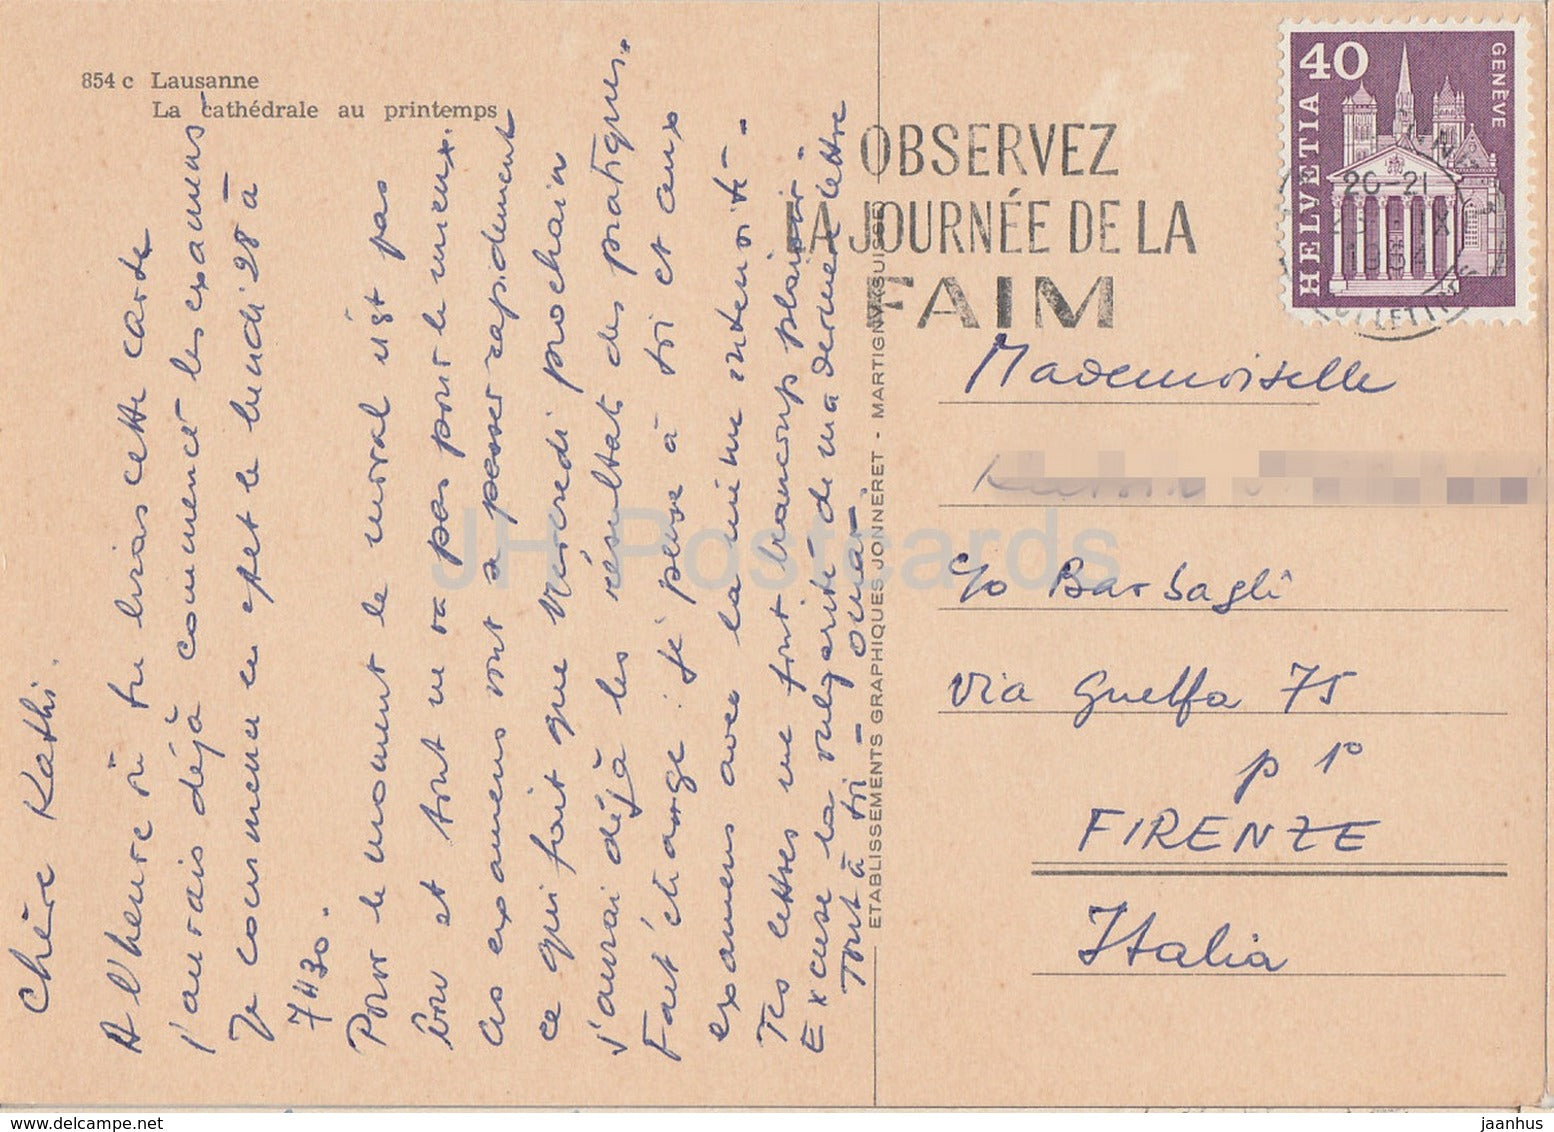 854 c Lausanne
La cathédrale au printemps
Chère Kathi.
A l'heure où tu liras cette carte
j'aurais déjà commencé les examens
Je commence en effet le lundi 28 à
7H30.
Pour le moment le moral n'est pas
bon et tout ne va pas pour le mieux.
Ces examens vont se passer rapidement
ce qui fait que Mercredi prochain
j'aurai déjà les résultats des pratiques.
Fait étrange : je pense à toi et aux
examens avec la même intensité -
Tes lettres me font beaucoup plaisir -
Excuse la vulgarité de ma dernière lettre
Tout à toi - Omar -
ETABLISSEMENTS GRAPHIQUES JONNERET - MARTIGNY/SUISSE
OBSERVEZ
LA JOURNÉE DE LA
FAIM
40
GENÈVE
HELVETIA
20-21
IX
1964
Mademoiselle
c/o Barbagli
via Guelfa 75
p 1°
FIRENZE
Italia
JH Postcards
www.delcampe.net
jaanhus